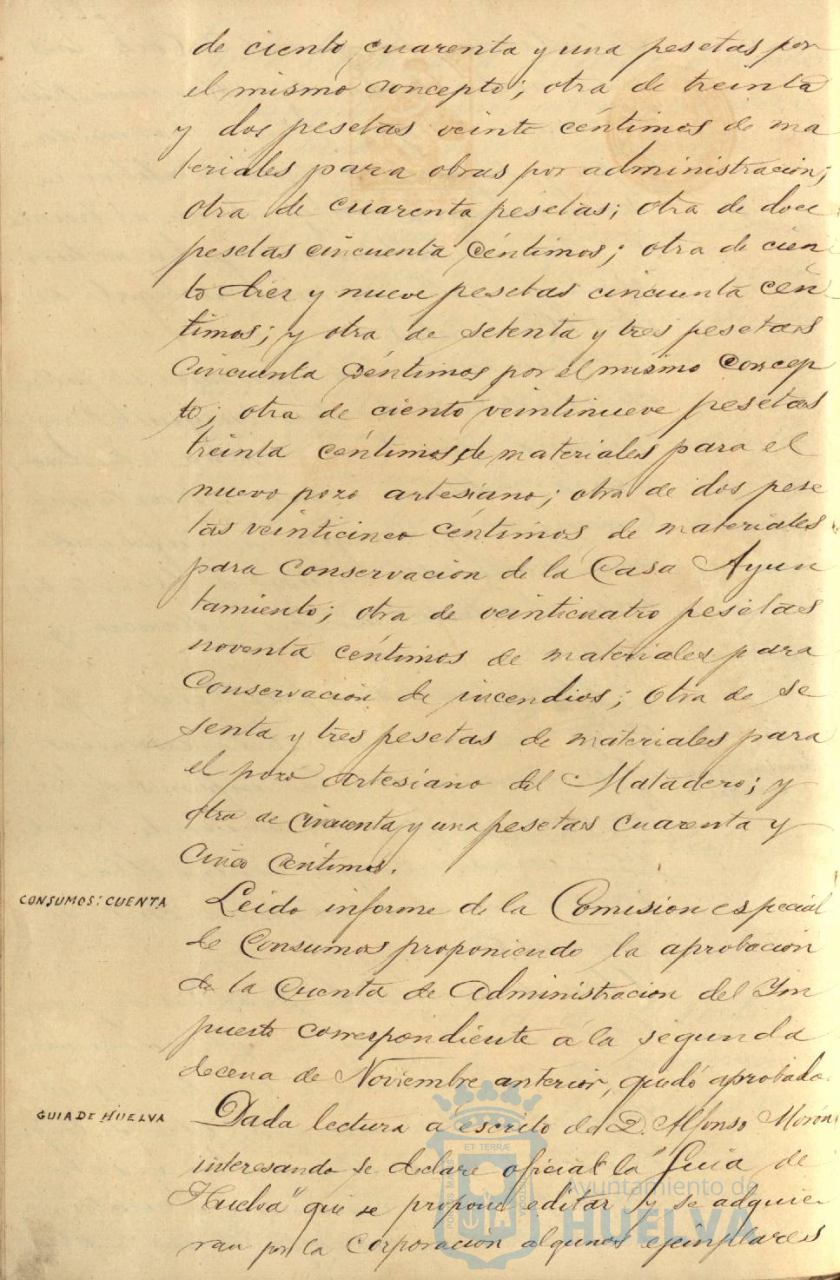 de ciento cuarenta y una pesetas por
el mismo concepto; otra de treinta
y dos pesetas veinte céntimos de ma
teriales para obras por administracion;
otra de cuarenta pesetas; otra de doce
pesetas cincuenta céntimos; otra de cien
to diez y nueve pesetas cincuenta cén
timos; y otra de setenta y tres pesetas
cincuenta céntimos por el mismo concep
to; otra de ciento veintinueve pesetas
treinta céntimos de materiales para el
nuevo pozo artesiano; otra de dos pese
tas veinticinco céntimos de materiales
para conservacion de la Casa Ayun
tamiento; otra de veinticuatro pesetas
noventa céntimos de materiales para
Conservacion de incendios; otra de se
senta y tres pesetas de materiales para
el pozo artesiano del Matadero; y
otra de cincuenta y una pesetas cuarenta y
cinco céntimos.
CONSUMOS: CUENTA
Leido informe de la Comision especial
de Consumos proponiendo la aprobacion
de la Cuenta de Administracion del Im
puesto correspondiente á la segunda
decena de Noviembre anterior, quedó aprobada.
GUIA DE HUELVA
Dada lectura a escrito de D. Alfonso Morón
interesando se declare oficial la "Guia de
Huelva" que se propone editar y se adquie
ran por la Corporacion algunos ejemplares
ET TERRÆ
Ayuntamiento de
HUELVA